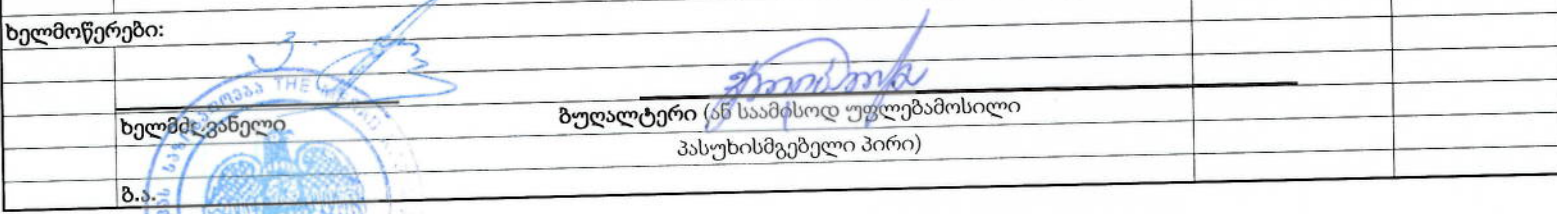 ხელმოწერები:
ხელმძღვანელი
ბუღალტერი (ან საამისოდ უფლებამოსილი
პასუხისმგებელი პირი)
ბ.ა.
THE